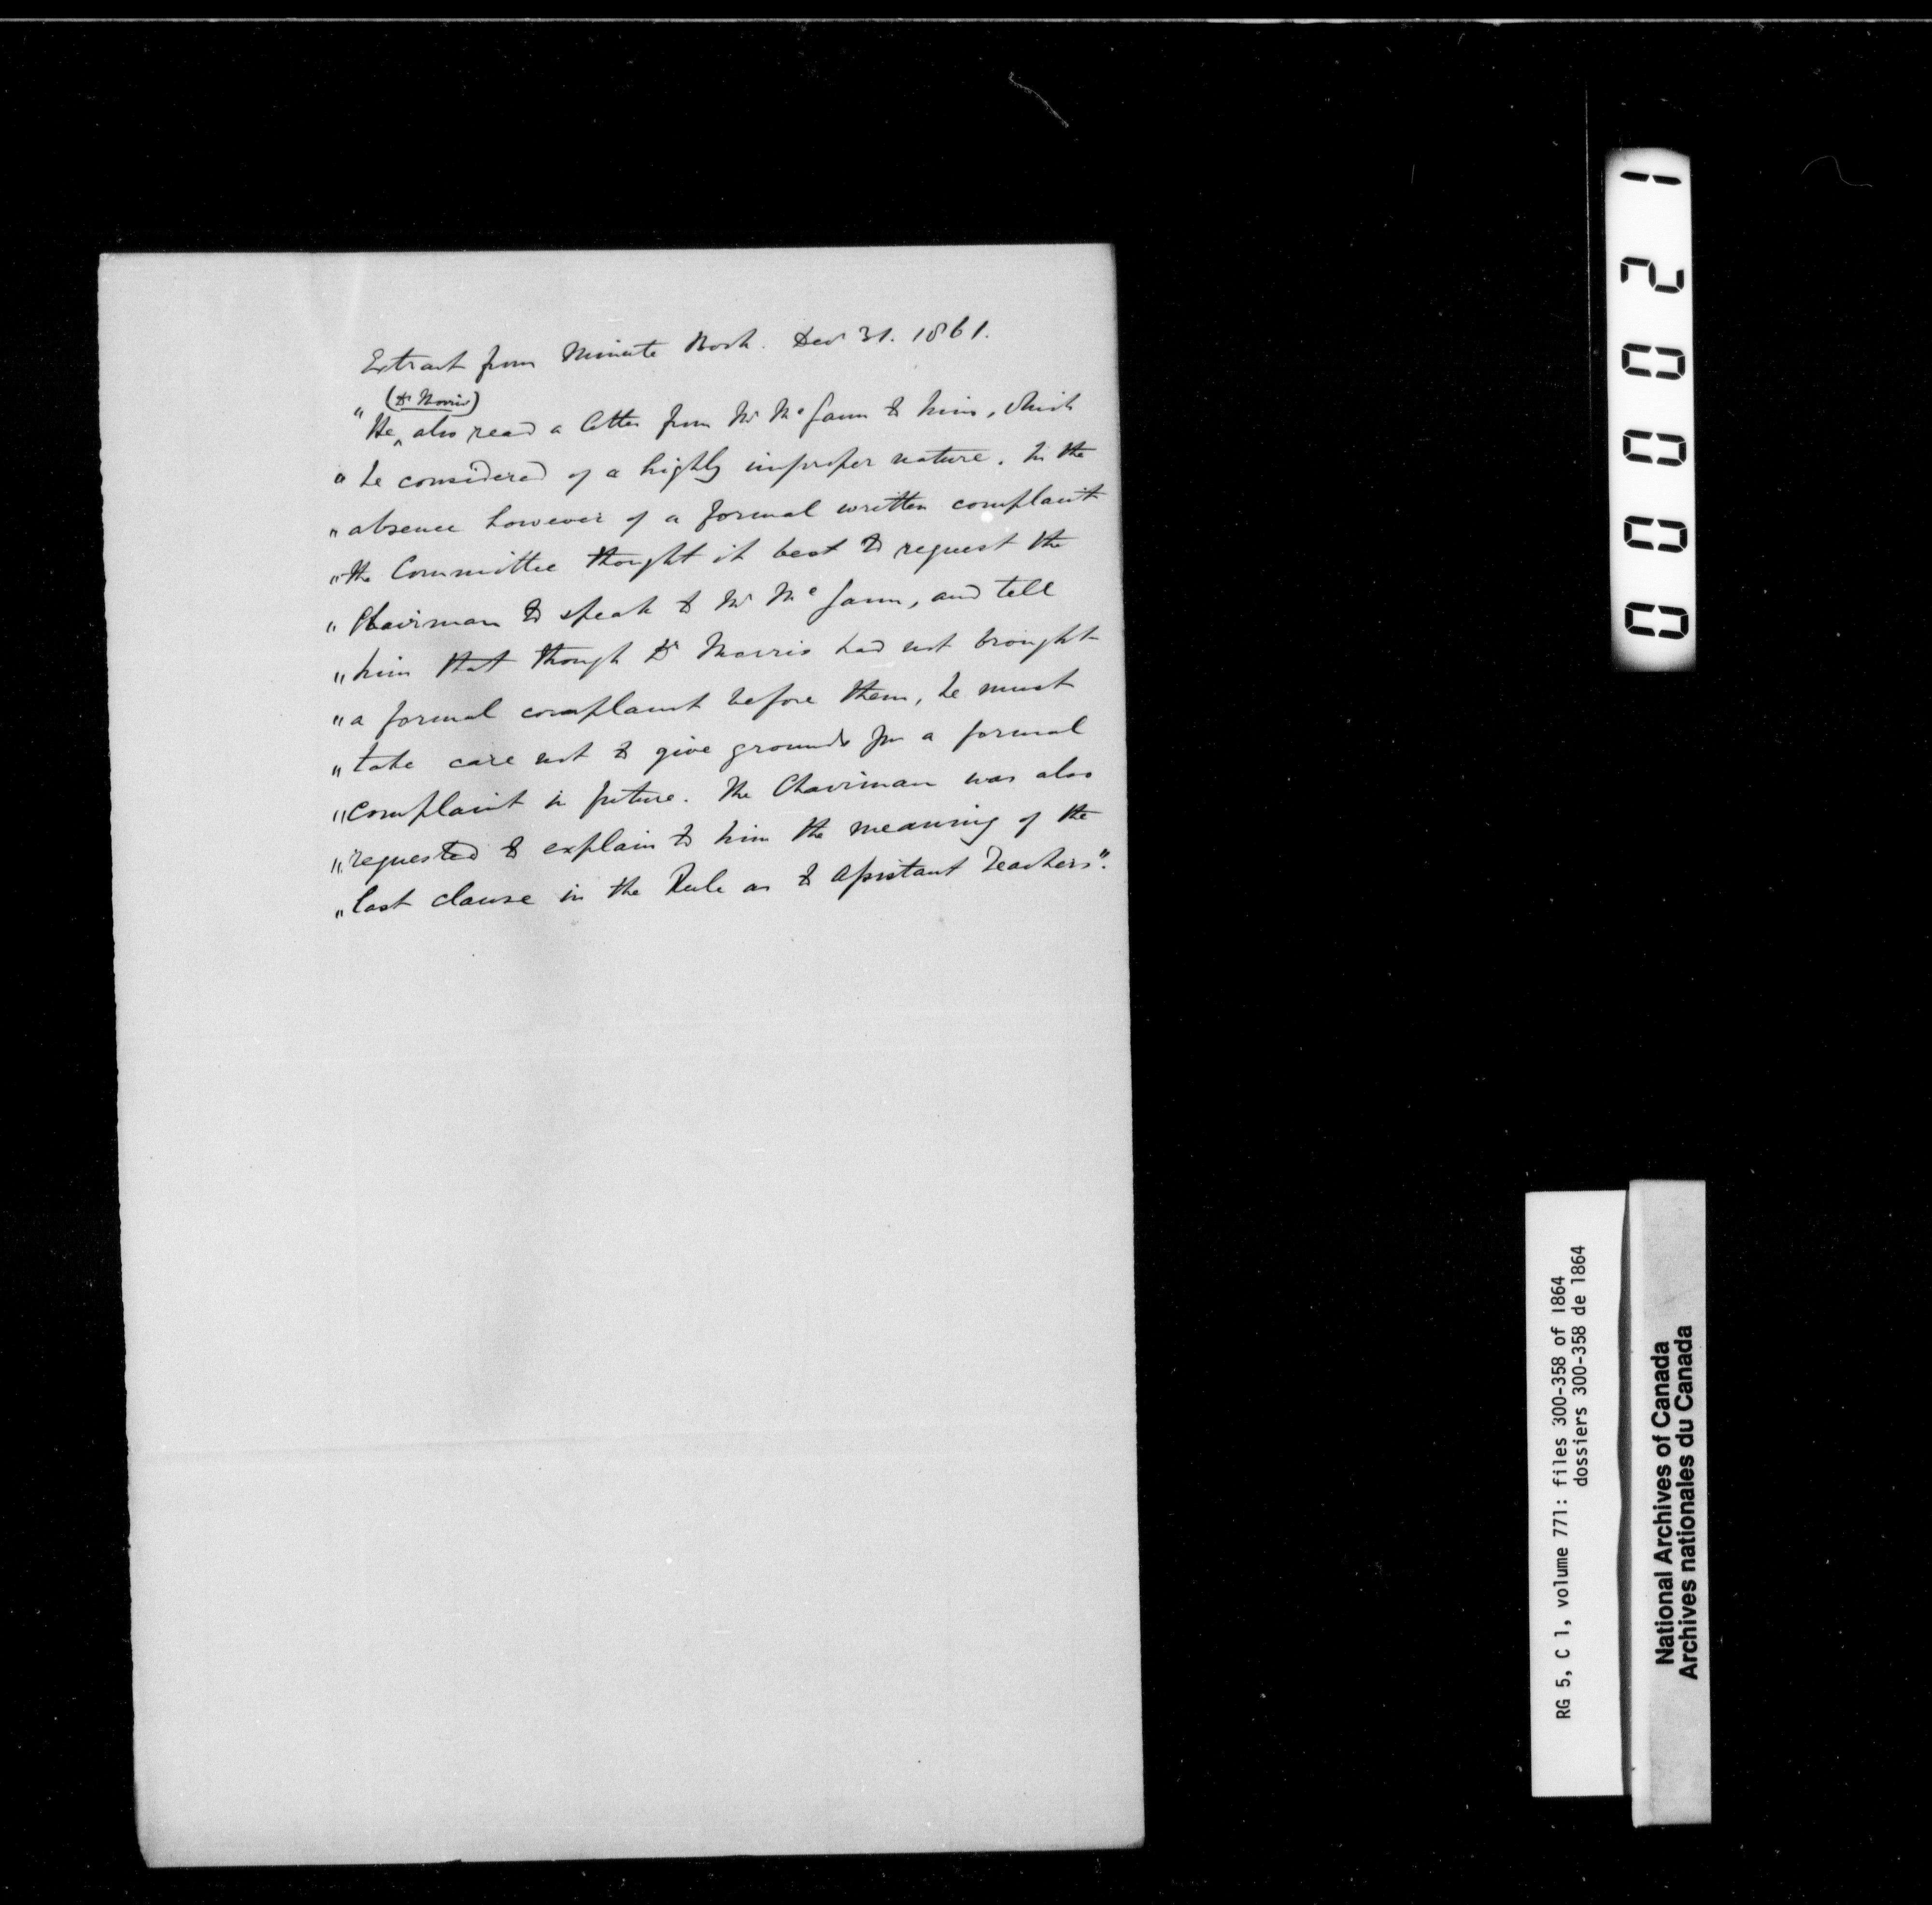 Extract from Minute Book. Dec 31. 1861.
(Dr Morris)
"He ‸ also read a letter from Mr McGann to him, which
"he considered of a highly improper nature. In the
"absence however of a formal written complaint
"the Committee thought it best to request the
"Chairman to speak to Mr McGann, and tell
"him that though Dr Morris had not brought
"a formal complaint before them, he must
"take care not to give grounds for a formal
"complaint in future. The Chairman was also
"requested to explain to him the meaning of the
"last clause in the Rule as to Assistant Teachers".
000021
RG 5, C 1, volume 771: files 300-358 of 1864
dossiers 300-358 de 1864
National Archives of Canada
Archives nationales du Canada